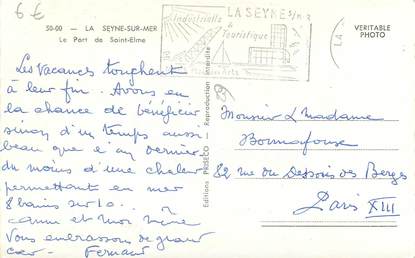 6 €
50-00 - LA SEYNE-SUR-MER
Le Port de Saint-Elme
Les Vacances touchent
à leur fin. Avons eu
la chance de bénéficier
sinon d'un temps aussi
beau que l'an dernier
du moins d'une chaleur
permettant en mer
8 bains sur 10...
et moi
Vous embrassons de grand
cœur - Fernand
Editions PRISECO
Reproduction interdite
Industrielle
&
Touristique
LA SEYNE S/MER
LA
VERITABLE
PHOTO
Monsieur & Madame
Bonnafoux
82 rue du Dessous des Berges
Paris XIII